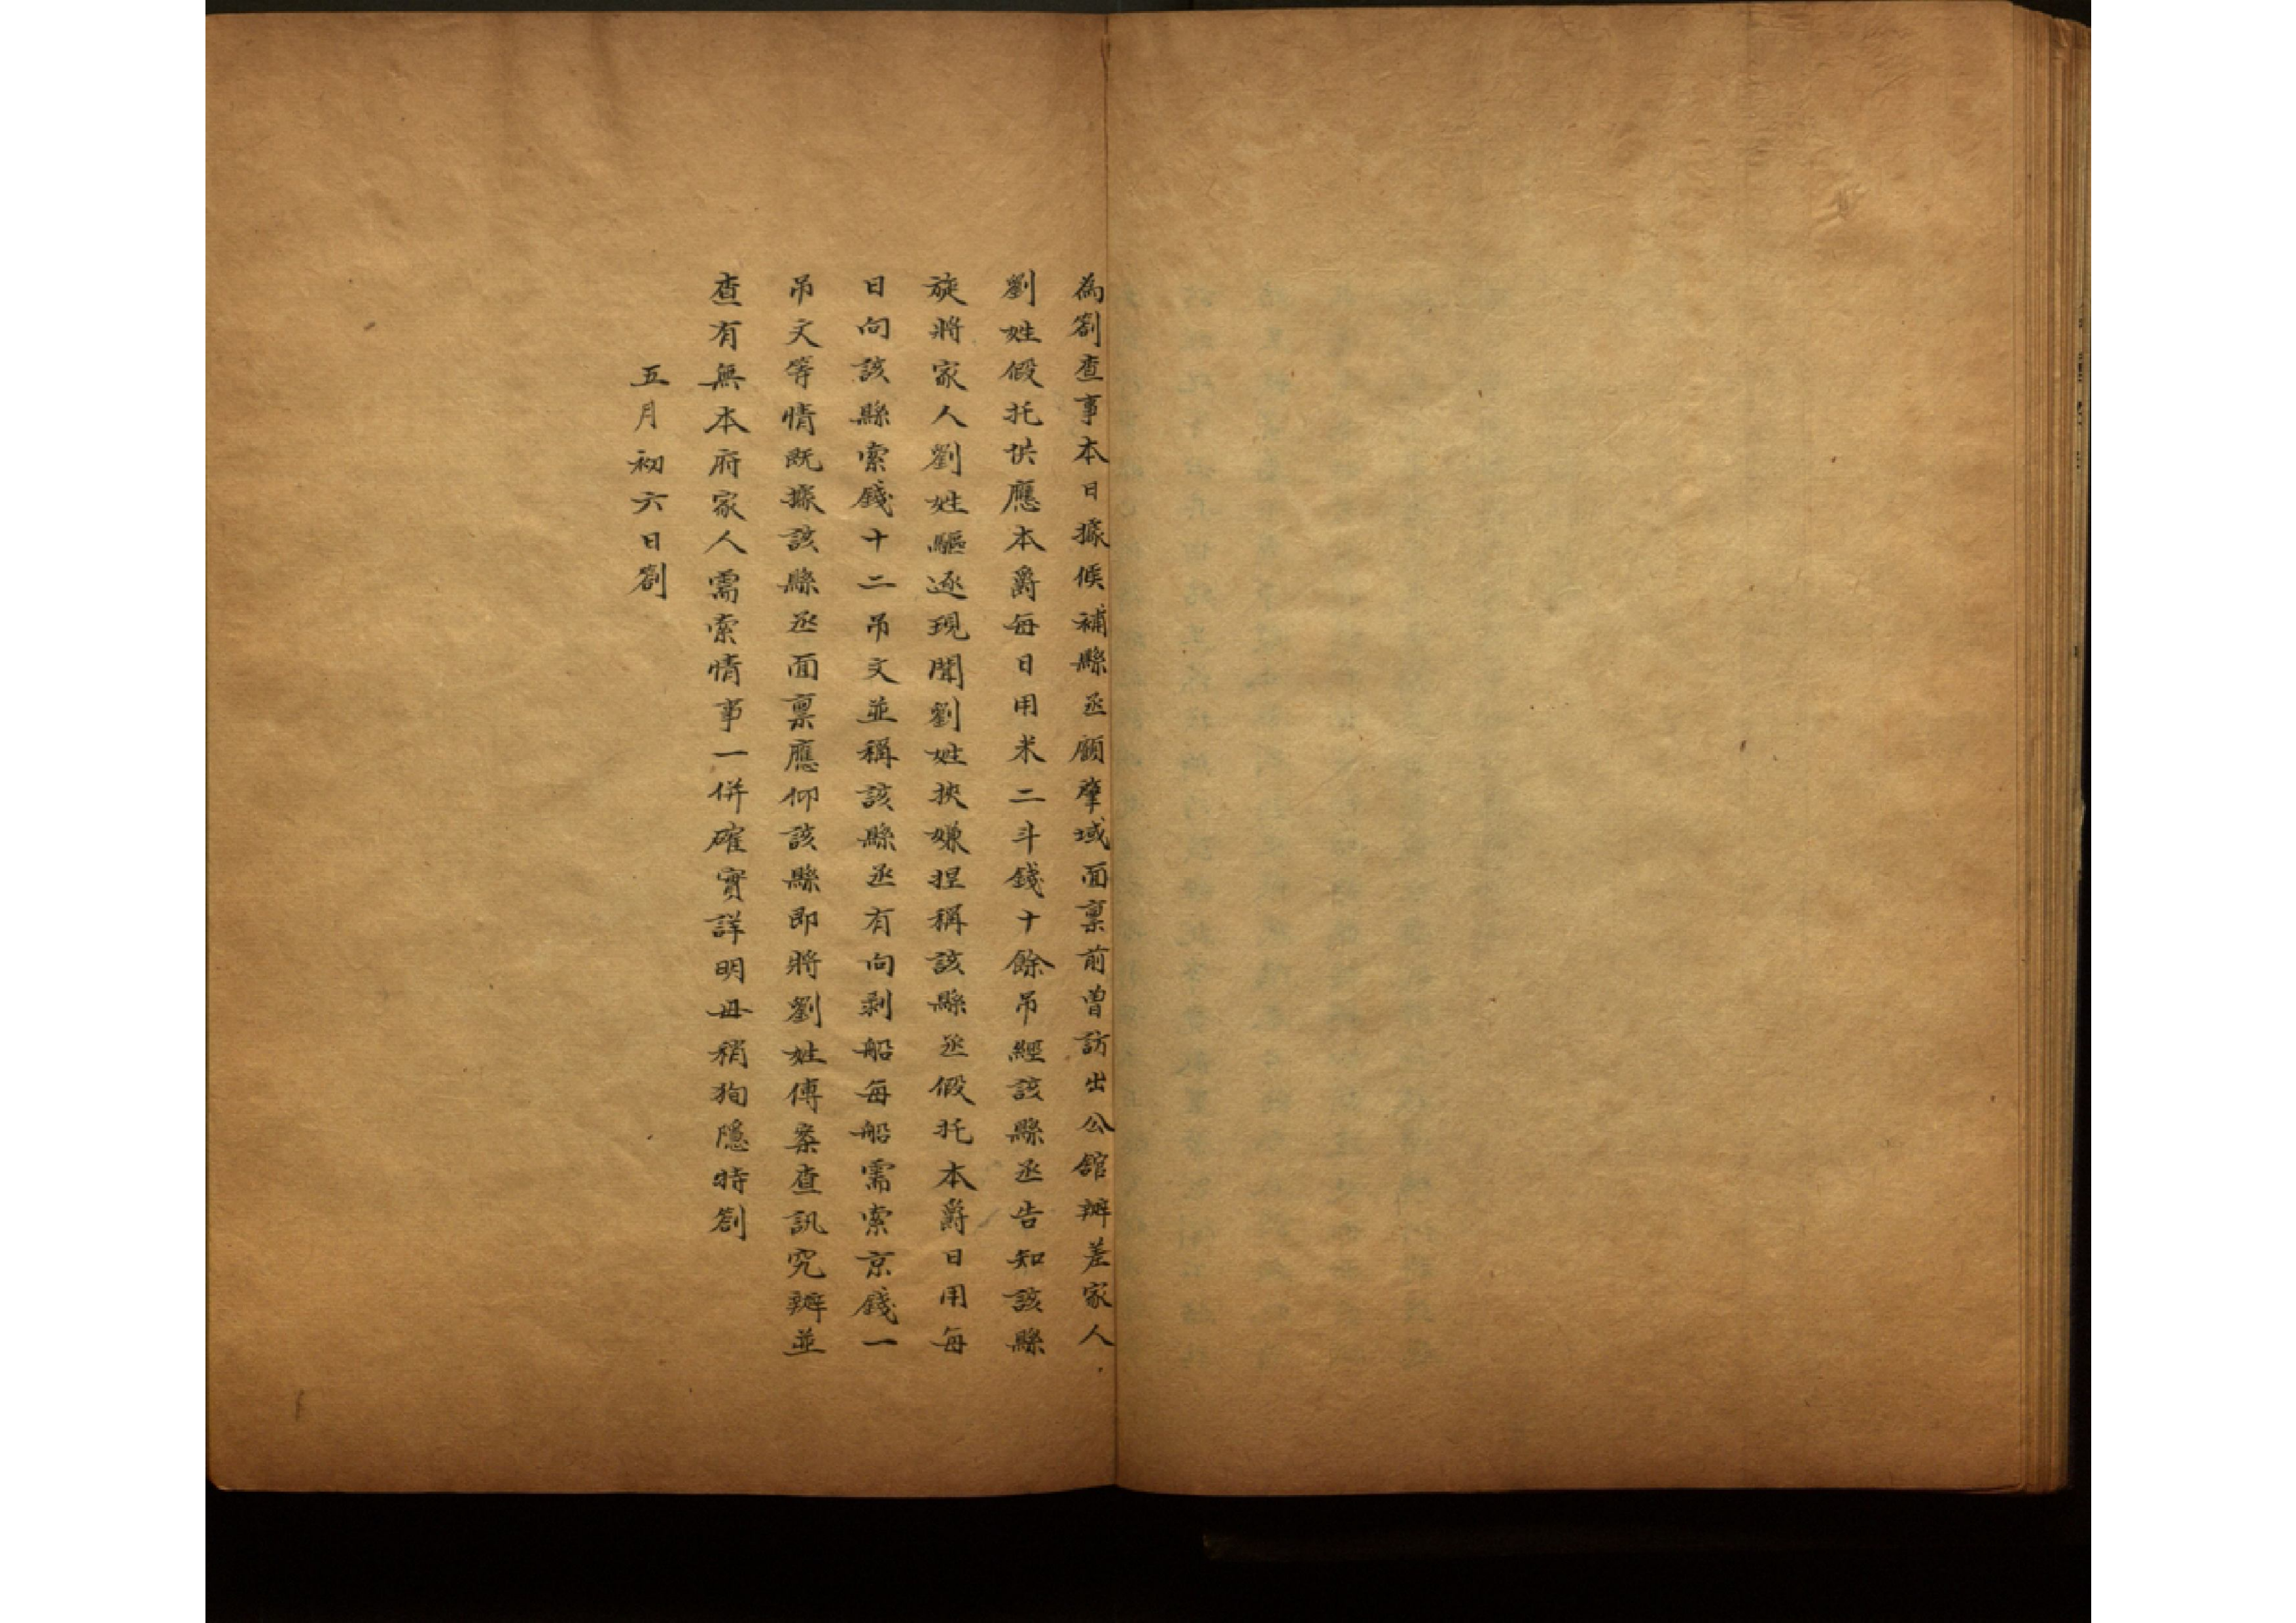 為劄查事本日據候補縣丞顧肇域面稟前曾訪出公館辦差家人
劉姓假托供應本爵每日用米二斗錢十餘吊經該縣丞告知該縣
旋將家人劉姓驅逐現聞劉姓挾嫌捏稱該縣丞假托本爵日用每
日向該縣索錢十二吊文並稱該縣丞有向剥船每船需索京錢一
吊文等情既據該縣丞面稟應仰該縣即將劉姓傳案查訊究辦並
查有無本府家人需索情事一併確實詳明毋稍狥隱特劄
五月初六日劄